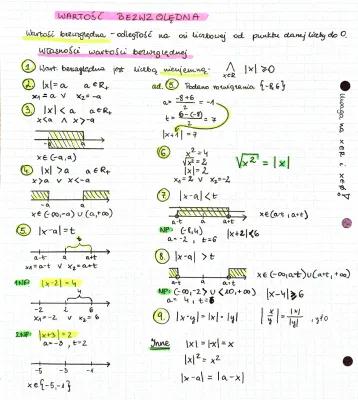 WARTOŚĆ BEZWZGLĘDNA
Wartość bezwzględna - odległość na osi liczbowej od punktu danej liczby do 0.
Własności wartości bezwzględnej
① Wart. bezwzględna jest liczbą nieujemną - ⋀ x∈R |x| ≥ 0
② |x| = a a∈R₊
x₁ = a ∨ x₂ = -a
③ |x| < a a∈R₊
x < a ∧ x > -a
-a a
x∈(-a,a)
④ |x| > a a∈R₊
x > a ∨ x < -a
-a a
x∈(-∞,-a)∪(a,+∞)
⑤ |x-a| = t
t
a-t a a+t
x₁ = a-t ∨ x₂ = a+t
1NP: |x-2| = 4
4
-2 2 6
x₁ = -2 ∨ x₂ = 6
2NP: |x+3| = 2
a = -3, t = 2
-5 -3 -1
x∈{-5,-1}
ad. ⑤ Podano rozwiązania {-8,6}
a = (-8+6)/2 = -1
t = (6-(-8))/2 = 7
|x+1| = 7
⑥ x² = 4
√x² = 2
|x| = 2
x₁ = 2 ∨ x₂ = -2
√x² = |x|
⑦ |x-a| < t
a-t a a+t
x∈(a-t, a+t)
NP: (-8,4)
a = -2, t = 6
|x+2| < 6
⑧ |x-a| > t
a-t a a+t
x∈(-∞,a-t)∪(a+t,+∞)
NP: (-∞,-2> ∪ <10,+∞)
|x-4| ≥ 6
a = 4, t = 6
⑨ |x·y| = |x|·|y|
|x/y| = |x|/|y| , y≠0
Inne |x| = |-x|
|x|² = x²
|x-a| = |a-x|
Uwaga na x∈R i x∈R₊